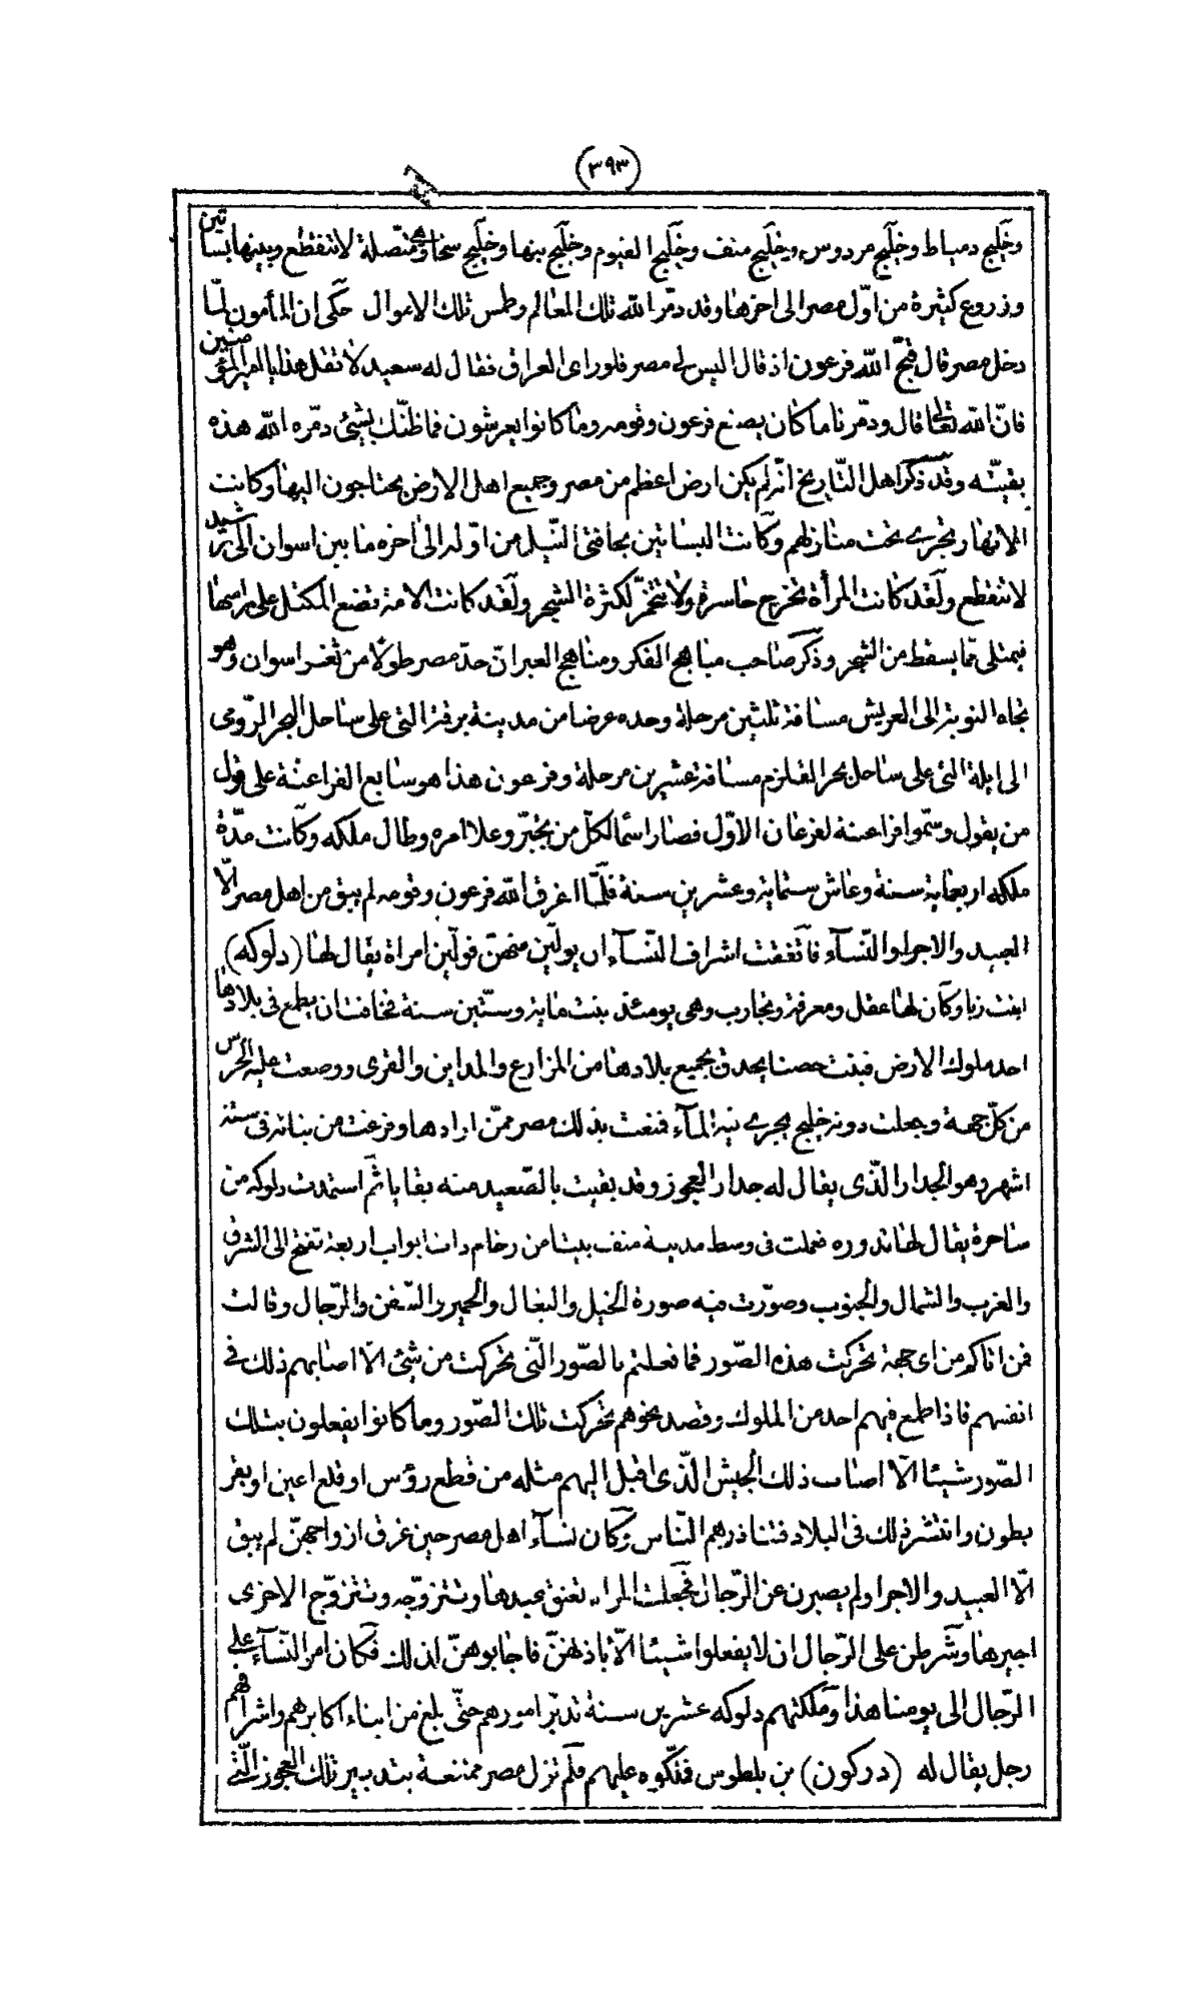 (٣٩٣)
وخليج دمياط وخليج مردوس وخليج منف وخليج الفيوم وخليج بنها وخليج سخا وهى متصلة لا تنقطع وبينها بساتين
وزروع كثيرة من اوّل مصر الى اخرها وقد دمّر الله تلك المعالم وطمس تلك الاموال حكى ان المأمون لمّا
دخل مصر قال قبّح الله فرعون اذ قال اليس لى مصر فلو راى العراق فقال له سعيد لا تقل هذا يا امير المؤمنين
فانّ الله تعالى قال ودمّرنا ما كان يصنع فرعون وقومه وما كانوا يعرشون فما ظنّك بشئ دمّره الله هذه
بقيّته وقد ذكر اهل التّاريخ انّه لم يكن ارض اعظم من مصر وجميع اهل الارض يحتاجون اليها وكانت
الانهار تجرى تحت منازلهم وكانت البساتين بحافتى النّيل من اوّله الى اخره ما بين اسوان الى رشيد
لا تنقطع ولقد كانت المرأة تخرج حاسرة ولا تتخمّر لكثرة الشجر ولقد كانت الامة تضع المكتل على راسها
فيمتلى ممّا يسقط من الشجر وذكر صاحب مباهج الفكر ومناهج العبر انّ حدّ مصر طولا من ثغر اسوان وهو
تجاه النوبة الى العريش مسافة ثلثين مرحلة وحده عرضا من مدينة برقة التى على ساحل البحر الرّومى
الى ايلة التى على ساحل بحر القلزم مسافة عشرين مرحلة وفرعون هذا هو سابع الفراعنة على قول
من يقول وسمّوا فراعنة لفرعان الاوّل فصار اسما لكلّ من تجبّر وعلا امره وطال ملكه وكانت مدّة
ملكه اربعماية سنة وعاش ستماية وعشرين سنة فلمّا اغرق الله فرعون وقومه لم يبق من اهل مصر الّا
العبيد والاجراء والنّسآء فاتّفقت اشراف النّسآء ان يولّين منهنّ فولّين امراة يقال لها (دلوكه)
ابنت زبا وكان لها عقل ومعرفة وتجارب وهى يومئذ بنت ماية وستّين سنة فخافت ان يطمع فى بلادها
احد ملوك الارض فبنت حصنا يحدق بجميع بلادها من المزارع والمداين والقرى ووضعت عليه الحرس
من كلّ جهة وجعلت دونه خليج يجرى فيه المآء فنعت بذلك مصر ممّن ارادها وفرغت من بنائه فى ستة
اشهر وهو الجدار الّذى يقال له جدار العجوز وقد بقيت بالصّعيد منه بقايا ثمّ استمدت دلوكه من
ساحرة يقال لها تدوره فعملت فى وسط مدينة منف بيتا من رخام ذات ابواب اربعة تفتح الى الشرق
والغرب والشمال والجنوب وصوّرت فيه صورة الخيل والبغال والحمير والسّفن والرّجال وقالت
فمن اتاكم من اى جهة تحركت هذه الصّور فما فعلتم بالصّور الّتى تحركت من شئ الّا اصابهم ذلك فى
انفسهم فاذا طمع فيهم احد من الملوك وقصد نحوهم تحركت تلك الصّور وما كانوا يفعلون بتلك
الصّور شيئا الّا اصاب ذلك الجيش الّذى اقبل اليهم مثله من قطع رؤس او قلع اعين او بقر
بطون وانتشر ذلك فى البلاد فتناذرهم النّاس وكان نسآء اهل مصر حين غرق ازواجهنّ لم يبق
الّا العبيد والاجرا ولم يصبرن عن الرّجال فجعلت المراة تعتق عبدها وتتزوّجه وتتزوّج الاخرى
اجيرها وشرطن على الرّجال ان لا يفعلوا شيئا الّا باذنهنّ فاجابوهنّ لذلك فكان امر النّسآء على
الرّجال الى يومنا هذا وملكتهم دلوكه عشرين سنة تدبّر امورهم حتّى بلغ من ابناء اكابرهم واشرافهم
رجل يقال له (دركون) بن بلطوس فملّكوه عليهم فلم تزل مصر ممتنعة بتدبير تلك العجوز الّتى